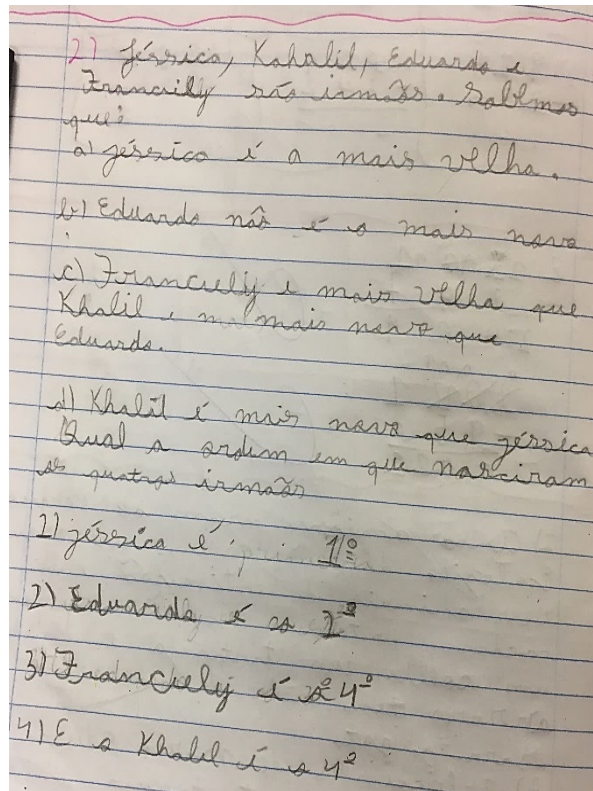 2) Jéssica, Kahalil, Eduardo e
Franciely são irmãos. Sabemos
que:
a) Jéssica é a mais velha.
b) Eduardo não é o mais novo
c) Franciely e mais velha que
Khalil e mais novo que
Eduardo.
d) Khalil é mais novo que Jéssica
Qual a ordem em que nasciram
os quatros irmãos
1) Jéssica é 1º
2) Eduardo é o 2º
3) Franciely é 4º
4) E o Khalil é o 4º